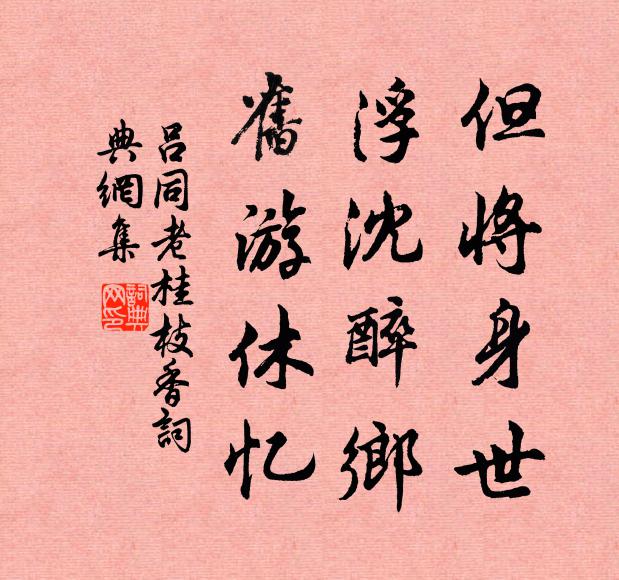 但将身世
浮沈醉鄉
舊游休忆
吕同老桂枝香詞
典網集
詞典网印